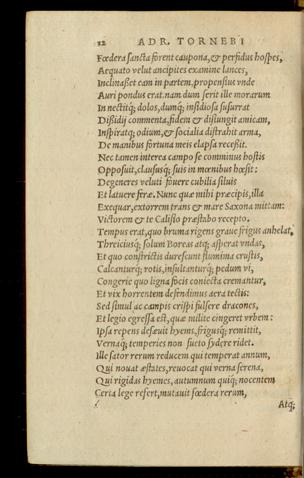 12 ADR. TORNEBI
Fœdera sancta forent caupona, & perfidus hospes,
Aequato velut ancipites examine lances,
Inclinasset eam in partem, propensius vnde
Auri pondus erat. nam dum serit ille morarum
In nectitq; dolos, dumq; insidiosa susurrat
Dissidij commenta, fidem & disiungit amicam,
Inspiratq; odium, & socialia distrahit arma,
De manibus fortuna meis elapsa recessit.
Nec tamen interea campo se comminus hostis
Opposuit, claususq; suis in mœnibus hæsit:
Degeneres veluti fouere cubilia siluis
Et latuere feræ. Nunc quæ mihi præcipis, illa
Exequar, extorrem trans & mare Saxona mittam:
Victorem & te Calisio præstabo recepto.
Tempus erat, quo bruma rigens graue frigus anhelat,
Threiciusq; solum Boreas atq; asperat vndas,
Et quo constrictis durescunt flumina crustis,
Calcanturq; rotis, insultanturq; pedum vi,
Congerie quo ligna focis coniecta cremantur,
Et vix horrentem defendimus aera tectis:
Sed simul ac campis crispi fulsere dracones,
Et legio egressa est, quæ milite cingeret vrbem:
Ipsa repens desæuit hyems, frigusq; remittit,
Vernaq; temperies non sueto sydere ridet.
Ille sator rerum reducem qui temperat annum,
Qui nouat æstates, reuocat qui verna serena,
Qui rigidas hyemes, autumnum quiq; nocentem
Certa lege refert, mutauit fœdera rerum,
Atq;